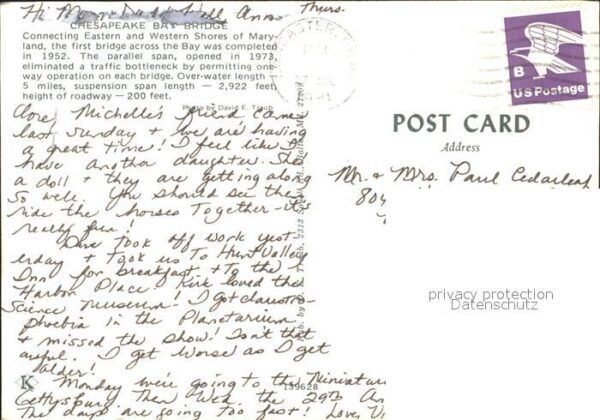 Hi Mom Dad & all Anno Thurs.
CHESAPEAKE BAY BRIDGE
Connecting Eastern and Western Shores of Mary-
land, the first bridge across the Bay was completed
in 1952. The parallel span, opened in 1973,
eliminated a traffic bottleneck by permitting one-
way operation on each bridge. Over-water length —
5 miles, suspension span length — 2,922 feet,
height of roadway — 200 feet.
Photo by David E. Traub
Michelle's friend came
last Sunday & we are having
a great time! I feel like I
have another daughter. She
a doll & they are getting along
so well. You should see them
ride the horses together - it's
really fun!
Dave took off work yest-
erday & took us to Hunt Valley
Inn for breakfast & to the
Harbor Place. Kirk loved the
Science Museum! I got claustro-
phobia in the Planetarium
& missed the show! Isn't that
awful. I get worse as I get
older!
Monday we're going to the Miniature
Gettysburg then Wed. the 29th An
The days are going too fast! Love, Vi
K
139628
B
US Postage
POST CARD
Address
Mr. & Mrs. Paul Cedarleaf
804
privacy protection
Datenschutz